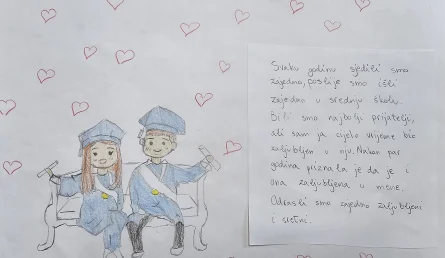 Svaku godinu sjedili smo
zajedno, poslije smo išli
zajedno u srednju školu.
Bili smo najbolji prijatelji,
ali sam ja cijelo vrijeme bio
zaljubljen u nju. Nakon par
godina priznala je da je i
ona zaljubljena u mene.
Odrasli smo zajedno zaljubljeni
i sretni.